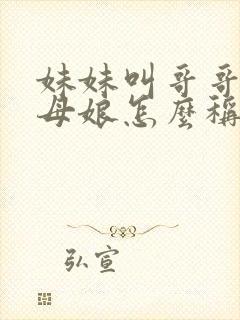 妹妹叫哥哥
母娘怎麼稱
弘宣